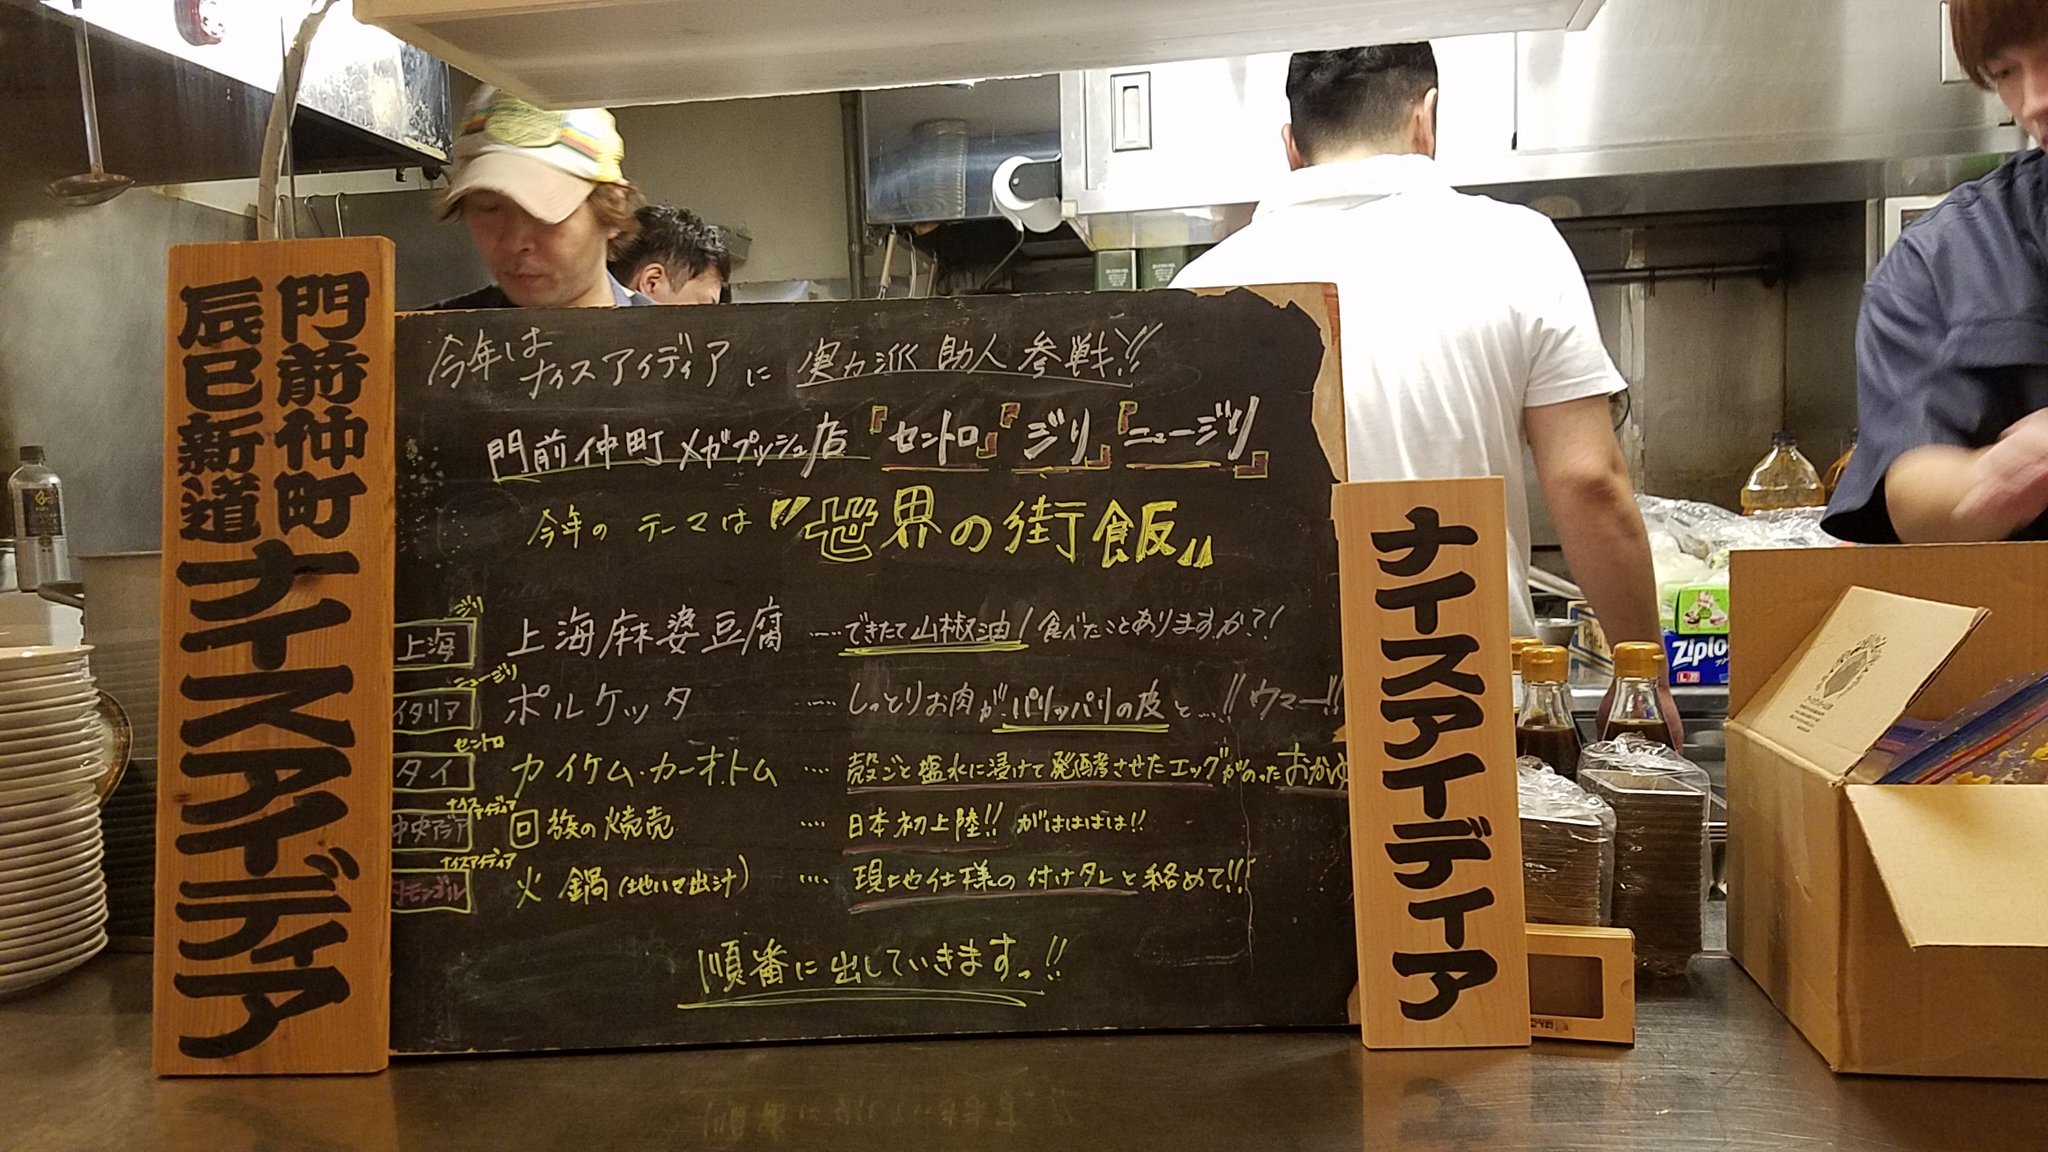 門前仲町
辰巳新道
ナイスアイデア
今年は
ナイスアイディアに 実力派助人参戦!!
門前仲町メガプッシュ店『セントロ』『ジリ』『ニュージリ』
今年のテーマは"世界の街飯"
ジリ
上海 上海麻婆豆腐 ……できたて山椒油!食べたことありますか?!
ニュージリ
イタリア ポルケッタ …… しっとりお肉がパリッパリの皮と…!!ウマー!!
セントロ
タイ カイケム・カーオ・トム …… 殻ごと塩水に浸けて発酵させたエッグがのったおかゆ
ナイスアイディア
中央アジア 回族の焼売 …… 日本初上陸!! がはははは!!
ナイスアイディア
モンゴル 火鍋 …… 現地仕様の付けタレと絡めて!!
順番に出していきますっ!!
ナイスアイディア
Ziplo
L